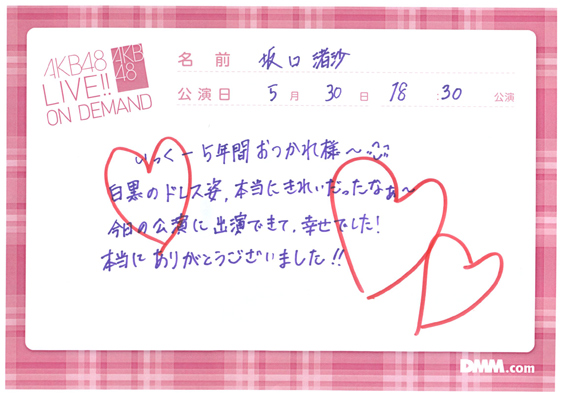 AKB48
LIVE!!
ON DEMAND
AKB
48
名前 坂口 渚沙
公演日 5月 30日 18:30 公演
いっくー5年間おつかれ様〜
白黒のドレス姿、本当にきれいだったなぁ〜
今日の公演に出演できて、幸せでした!
本当にありがとうございました!!
DMM.com